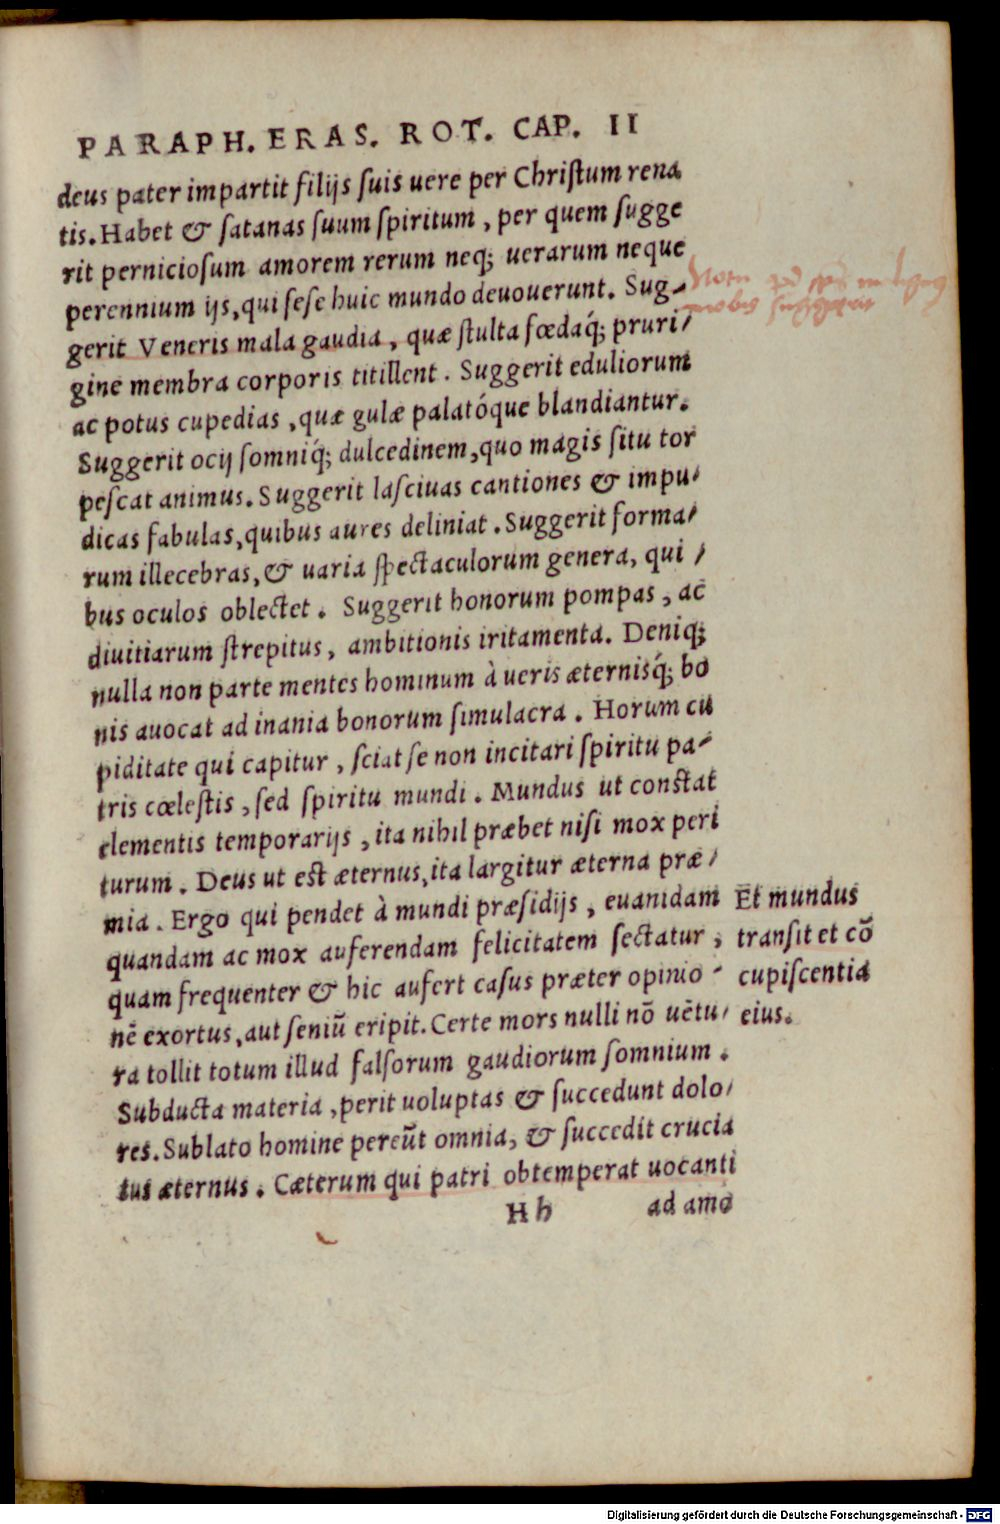 PARAPH. ERAS. ROT. CAP. II
deus pater impartit filijs suis uere per Christum rena
tis. Habet & satanas suum spiritum, per quem sugge
rit perniciosum amorem rerum neq; uerarum neque
perennium ijs, qui sese huic mundo deuouerunt. Sug-
gerit Veneris mala gaudia, quæ stulta fœdaq́; pruri/
gine membra corporis titillent. Suggerit eduliorum
ac potus cupedias, quæ gulæ palatóque blandiantur.
Suggerit ocij somniq́; dulcedinem, quo magis situ tor
pescat animus. Suggerit lasciuas cantiones & impu/
dicas fabulas, quibus aures deliniat. Suggerit forma/
rum illecebras, & uaria spectaculorum genera, qui /
bus oculos oblectet. Suggerit honorum pompas, ac
diuitiarum strepitus, ambitionis iritamenta. Deniq;
nulla non parte mentes hominum à ueris æternisq́; bo
nis auocat ad inania bonorum simulacra. Horum cu
piditate qui capitur, sciat se non incitari spiritu pa-
tris cœlestis, sed spiritu mundi. Mundus ut constat
elementis temporarijs, ita nihil præbet nisi mox peri
turum. Deus ut est æternus, ita largitur æterna præ/
mia. Ergo qui pendet à mundi præsidijs, euanidam
quandam ac mox auferendam felicitatem sectatur,
quam frequenter & hic aufert casus præter opinio -
nē exortus, aut seniū eripit. Certe mors nulli nō uētu/
ra tollit totum illud falsorum gaudiorum somnium.
Subducta materia, perit uoluptas & succedunt dolo/
res. Sublato homine pereūt omnia, & succedit crucia
tus æternus. Cæterum qui patri obtemperat uocanti
Hh ad amo
Et mundus
transit et cō
cupiscentia
eius.
nobis suggerit
Digitalisierung gefördert durch die Deutsche Forschungsgemeinschaft - DFG